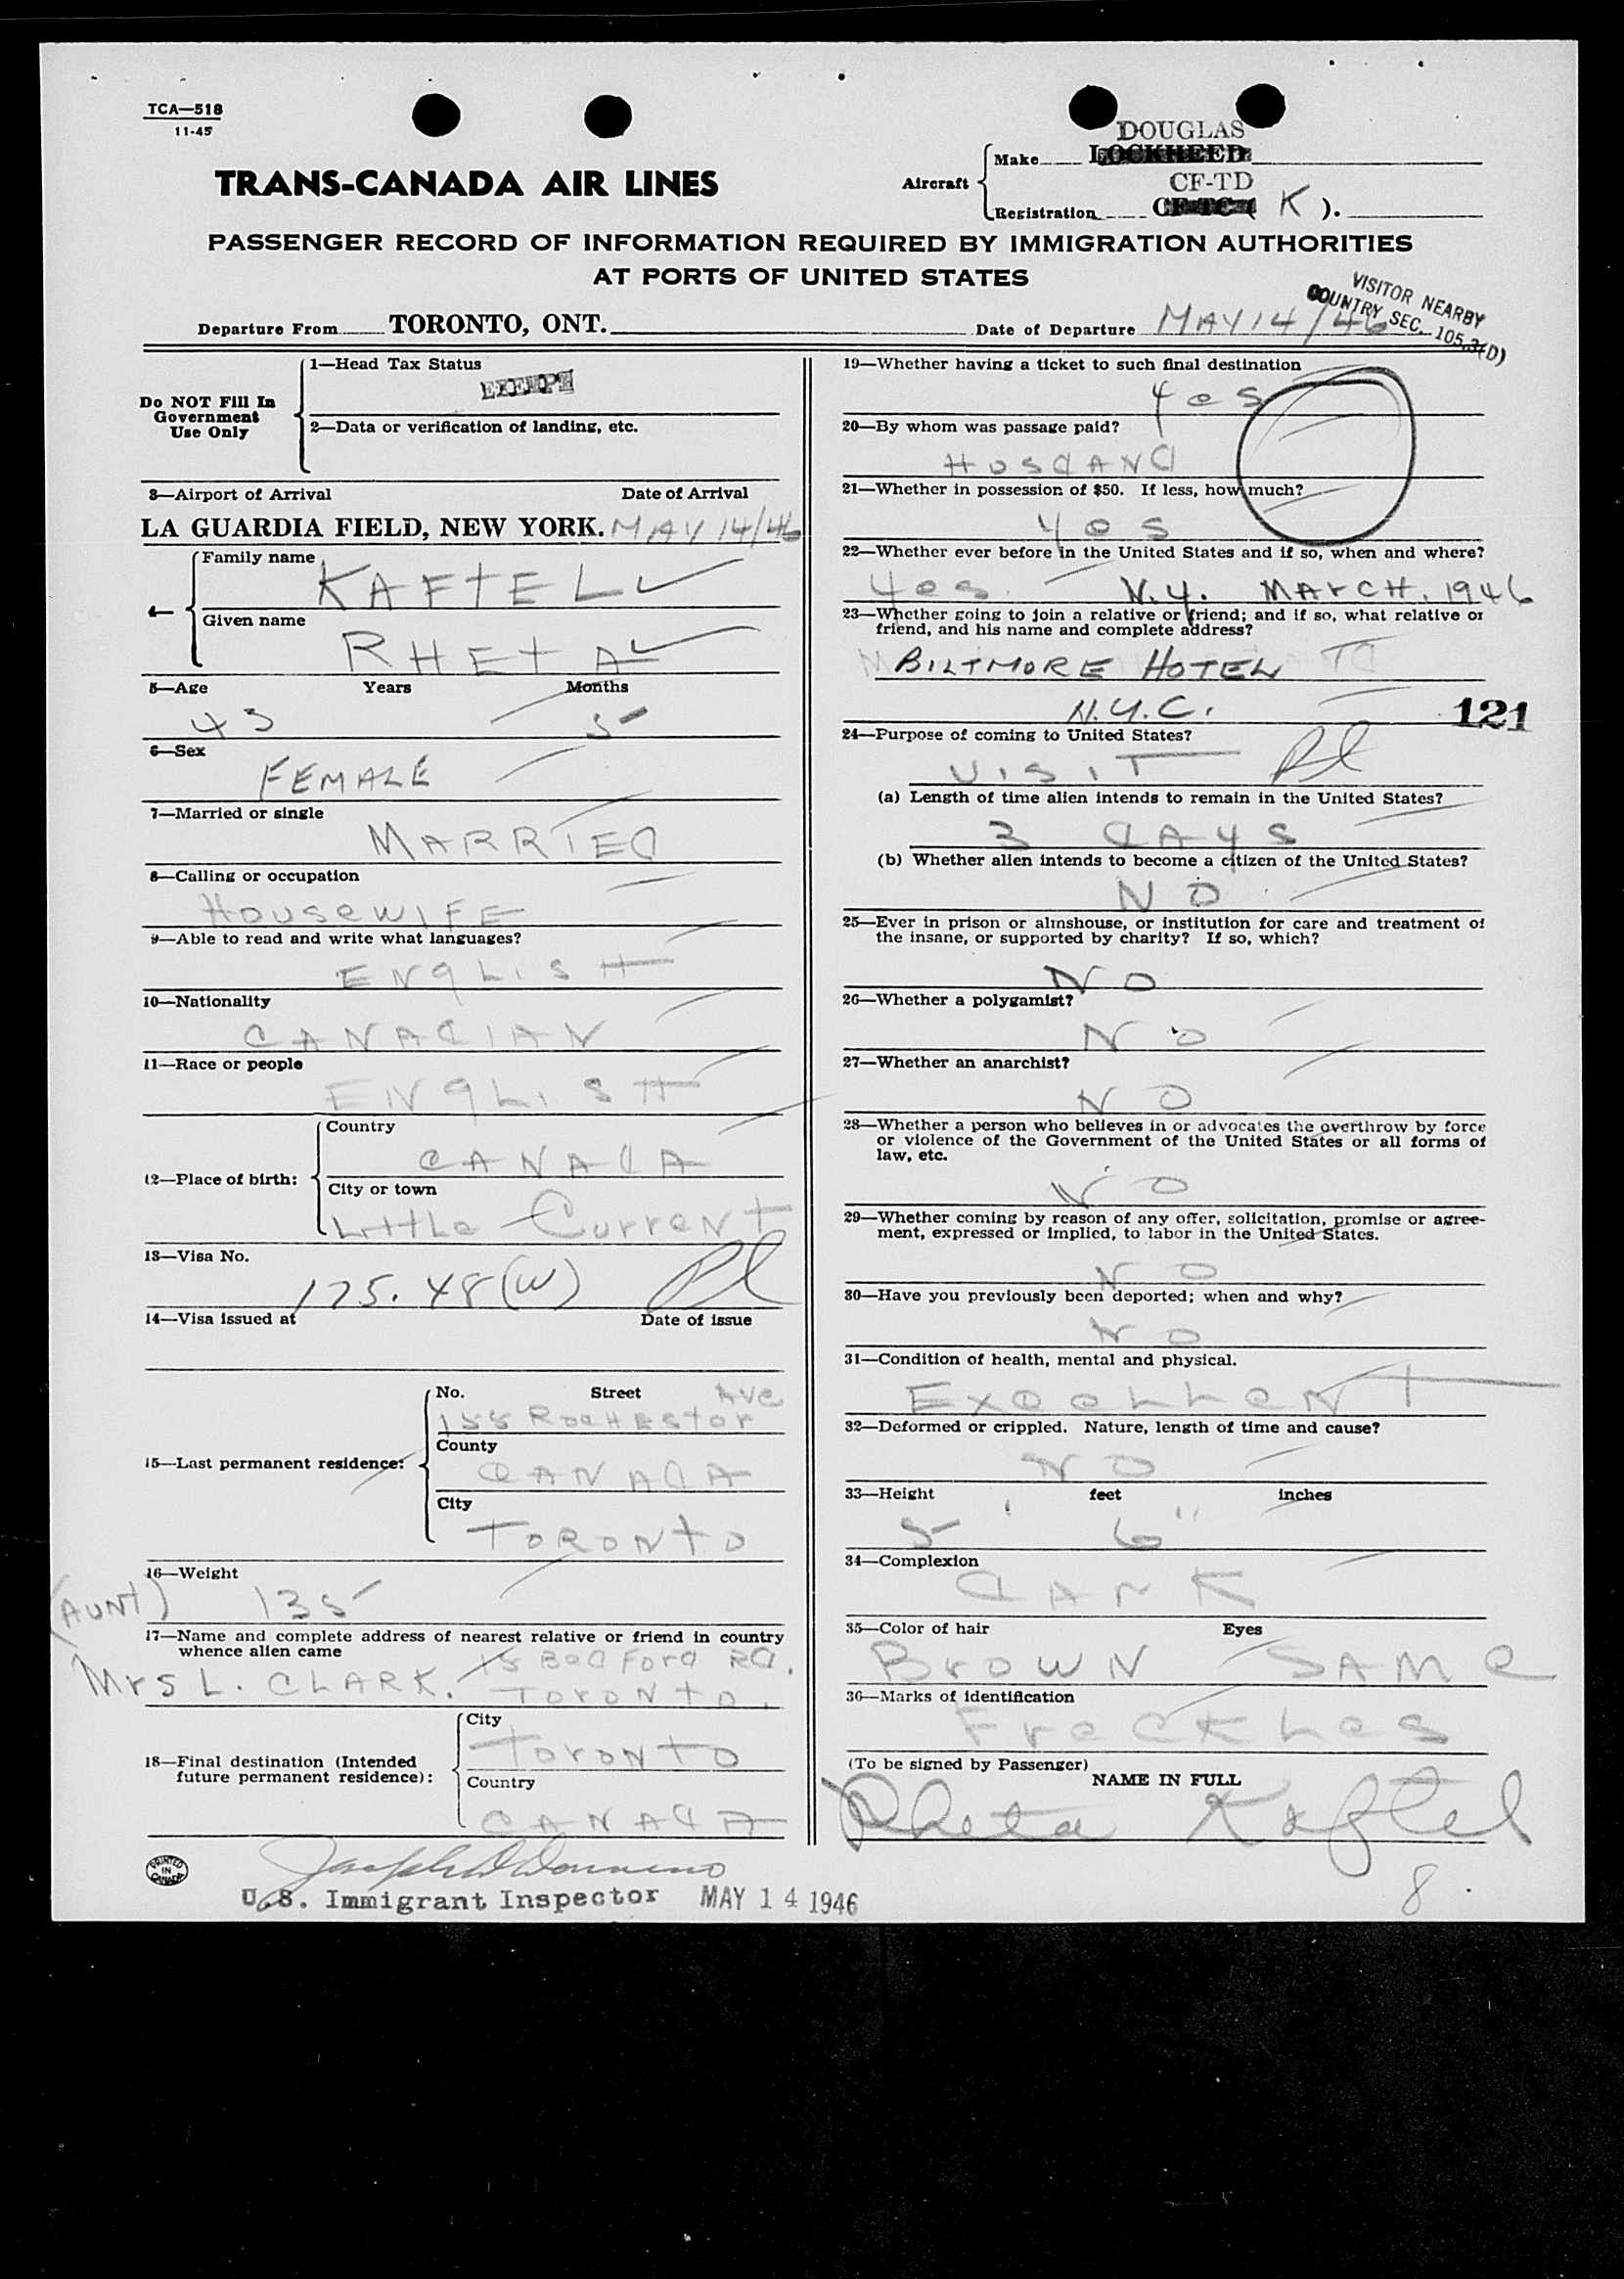 TCA—518
11-45
TRANS-CANADA AIR LINES
Aircraft
Make DOUGLAS
LOCKHEED
CF-TD
Registration CF-TC ( K ).
PASSENGER RECORD OF INFORMATION REQUIRED BY IMMIGRATION AUTHORITIES
AT PORTS OF UNITED STATES
VISITOR NEARBY
COUNTRY SEC. 105.3(D)
Departure From TORONTO, ONT. Date of Departure MAY 14/46
Do NOT Fill In
Government
Use Only
1—Head Tax Status
EXEMPT
2—Data or verification of landing, etc.
3—Airport of Arrival Date of Arrival
LA GUARDIA FIELD, NEW YORK. MAY 14/46
4—
Family name
KAFTEL
Given name
RHETA
5—Age Years Months
43 5
6—Sex
FEMALE
7—Married or single
MARRIED
8—Calling or occupation
HOUSeWIFE
9—Able to read and write what languages?
ENgLISH
10—Nationality
CANADIAN
11—Race or people
ENgLISH
12—Place of birth:
Country
CANADA
City or town
LittLe Current
13—Visa No.
175.48(W)
14—Visa issued at Date of issue
15—Last permanent residence:
No. Street Ave
155 ROCHEStor
County
CANADA
City
TORONtO
16—Weight
(AUNt) 135
17—Name and complete address of nearest relative or friend in country
whence alien came
Mrs L. CLARK. 15 BedFord Rd.
TOrONtO.
18—Final destination (Intended
future permanent residence):
City
TOrONtO
Country
CANADA
19—Whether having a ticket to such final destination
Yes
20—By whom was passage paid?
HUSBAND
21—Whether in possession of $50. If less, how much?
Yes
22—Whether ever before in the United States and if so, when and where?
Yes N.Y. MArCH. 1946
23—Whether going to join a relative or friend; and if so, what relative or
friend, and his name and complete address?
BILTMORE HOTEL
N.Y.C.
121
24—Purpose of coming to United States?
VISIT
(a) Length of time alien intends to remain in the United States?
3 DAYS
(b) Whether alien intends to become a citizen of the United States?
NO
25—Ever in prison or almshouse, or institution for care and treatment of
the insane, or supported by charity? If so, which?
NO
26—Whether a polygamist?
NO
27—Whether an anarchist?
NO
28—Whether a person who believes in or advocates the overthrow by force
or violence of the Government of the United States or all forms of
law, etc.
NO
29—Whether coming by reason of any offer, solicitation, promise or agree-
ment, expressed or implied, to labor in the United States.
NO
30—Have you previously been deported; when and why?
NO
31—Condition of health, mental and physical.
ExceLLeNT
32—Deformed or crippled. Nature, length of time and cause?
NO
33—Height feet inches
5' 6"
34—Complexion
DArK
35—Color of hair Eyes
BrOWN SAMe
36—Marks of identification
FrecKLes
(To be signed by Passenger)
NAME IN FULL
Rheta Kaftel
PRINTED
IN
CANADA
U.S. Immigrant Inspector MAY 14 1946
8